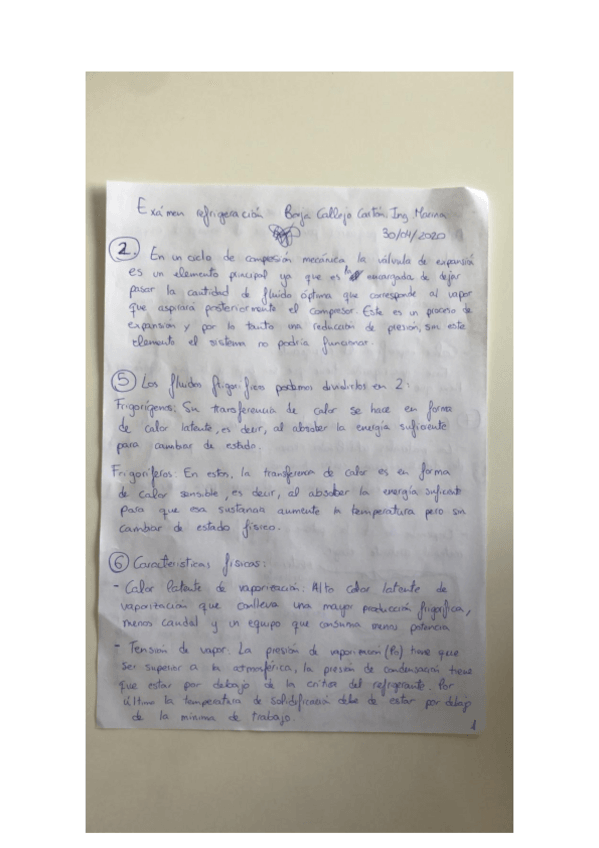 Exámen refrigeración Borja Calleja Castón Ing. Marina
30/04/2020
2. En un ciclo de compresión mecánica la válvula de expansión
es un elemento principal ya que es la encargada de dejar
pasar la cantidad de fluido óptima que corresponde al vapor
que aspirará posteriormente el compresor. Este es un proceso de
expansión y por lo tanto una reducción de presión, sin este
elemento el sistema no podría funcionar.
5 Los fluidos frigorífico podemos dividirlos en 2:
Frigorígenos: Su transferencia de calor se hace en forma
de calor latente, es decir, al absober la energía suficiente
para cambiar de estado.
Frigoríferos: En estos, la transferencia de calor es en forma
de calor sensible, es decir, al absober la energía suficiente
para que esa sustancia aumente la temperatura pero sin
cambiar de estado físico.
6 Características físicas:
- Calor latente de vaporización: Alto calor latente de
vaporización que conlleva una mayor producción frigorífica,
menos caudal y un equipo que consuma menos potencia.
- Tensión de vapor: La presión de vaporización (Po) tiene que
ser superior a la atmosférica, la presión de condensación tiene
que estar por debajo de la crítica del refrigerante. Por
último la temperatura de solidificación debe de estar por debajo
de la mínima de trabajo.
1